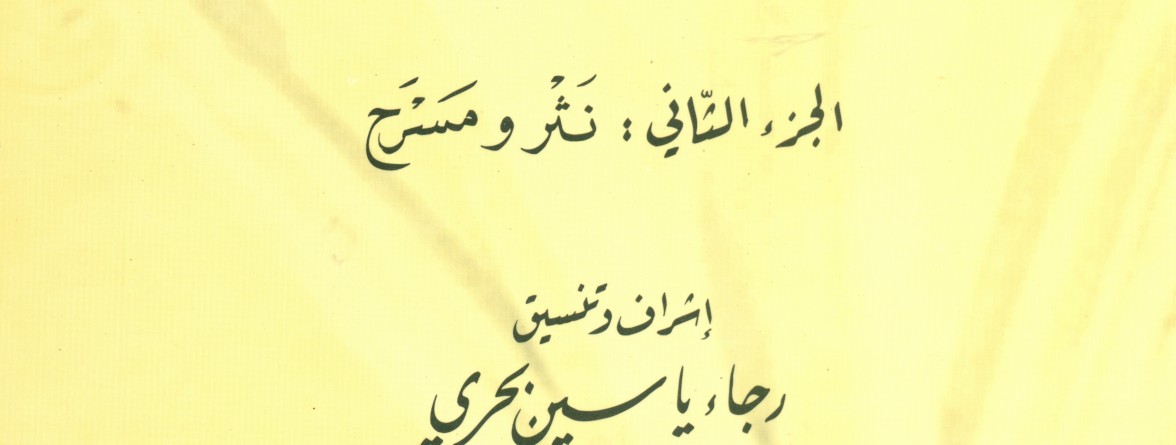 الجزء الثّاني : نَثْر و مَسَرَح
إشراف وتنسيق
رجاء ياسين بحري